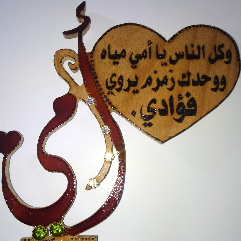 وكل الناس يا أمي مياه
ووحدك زمزم يروي
فؤادي.
أمي